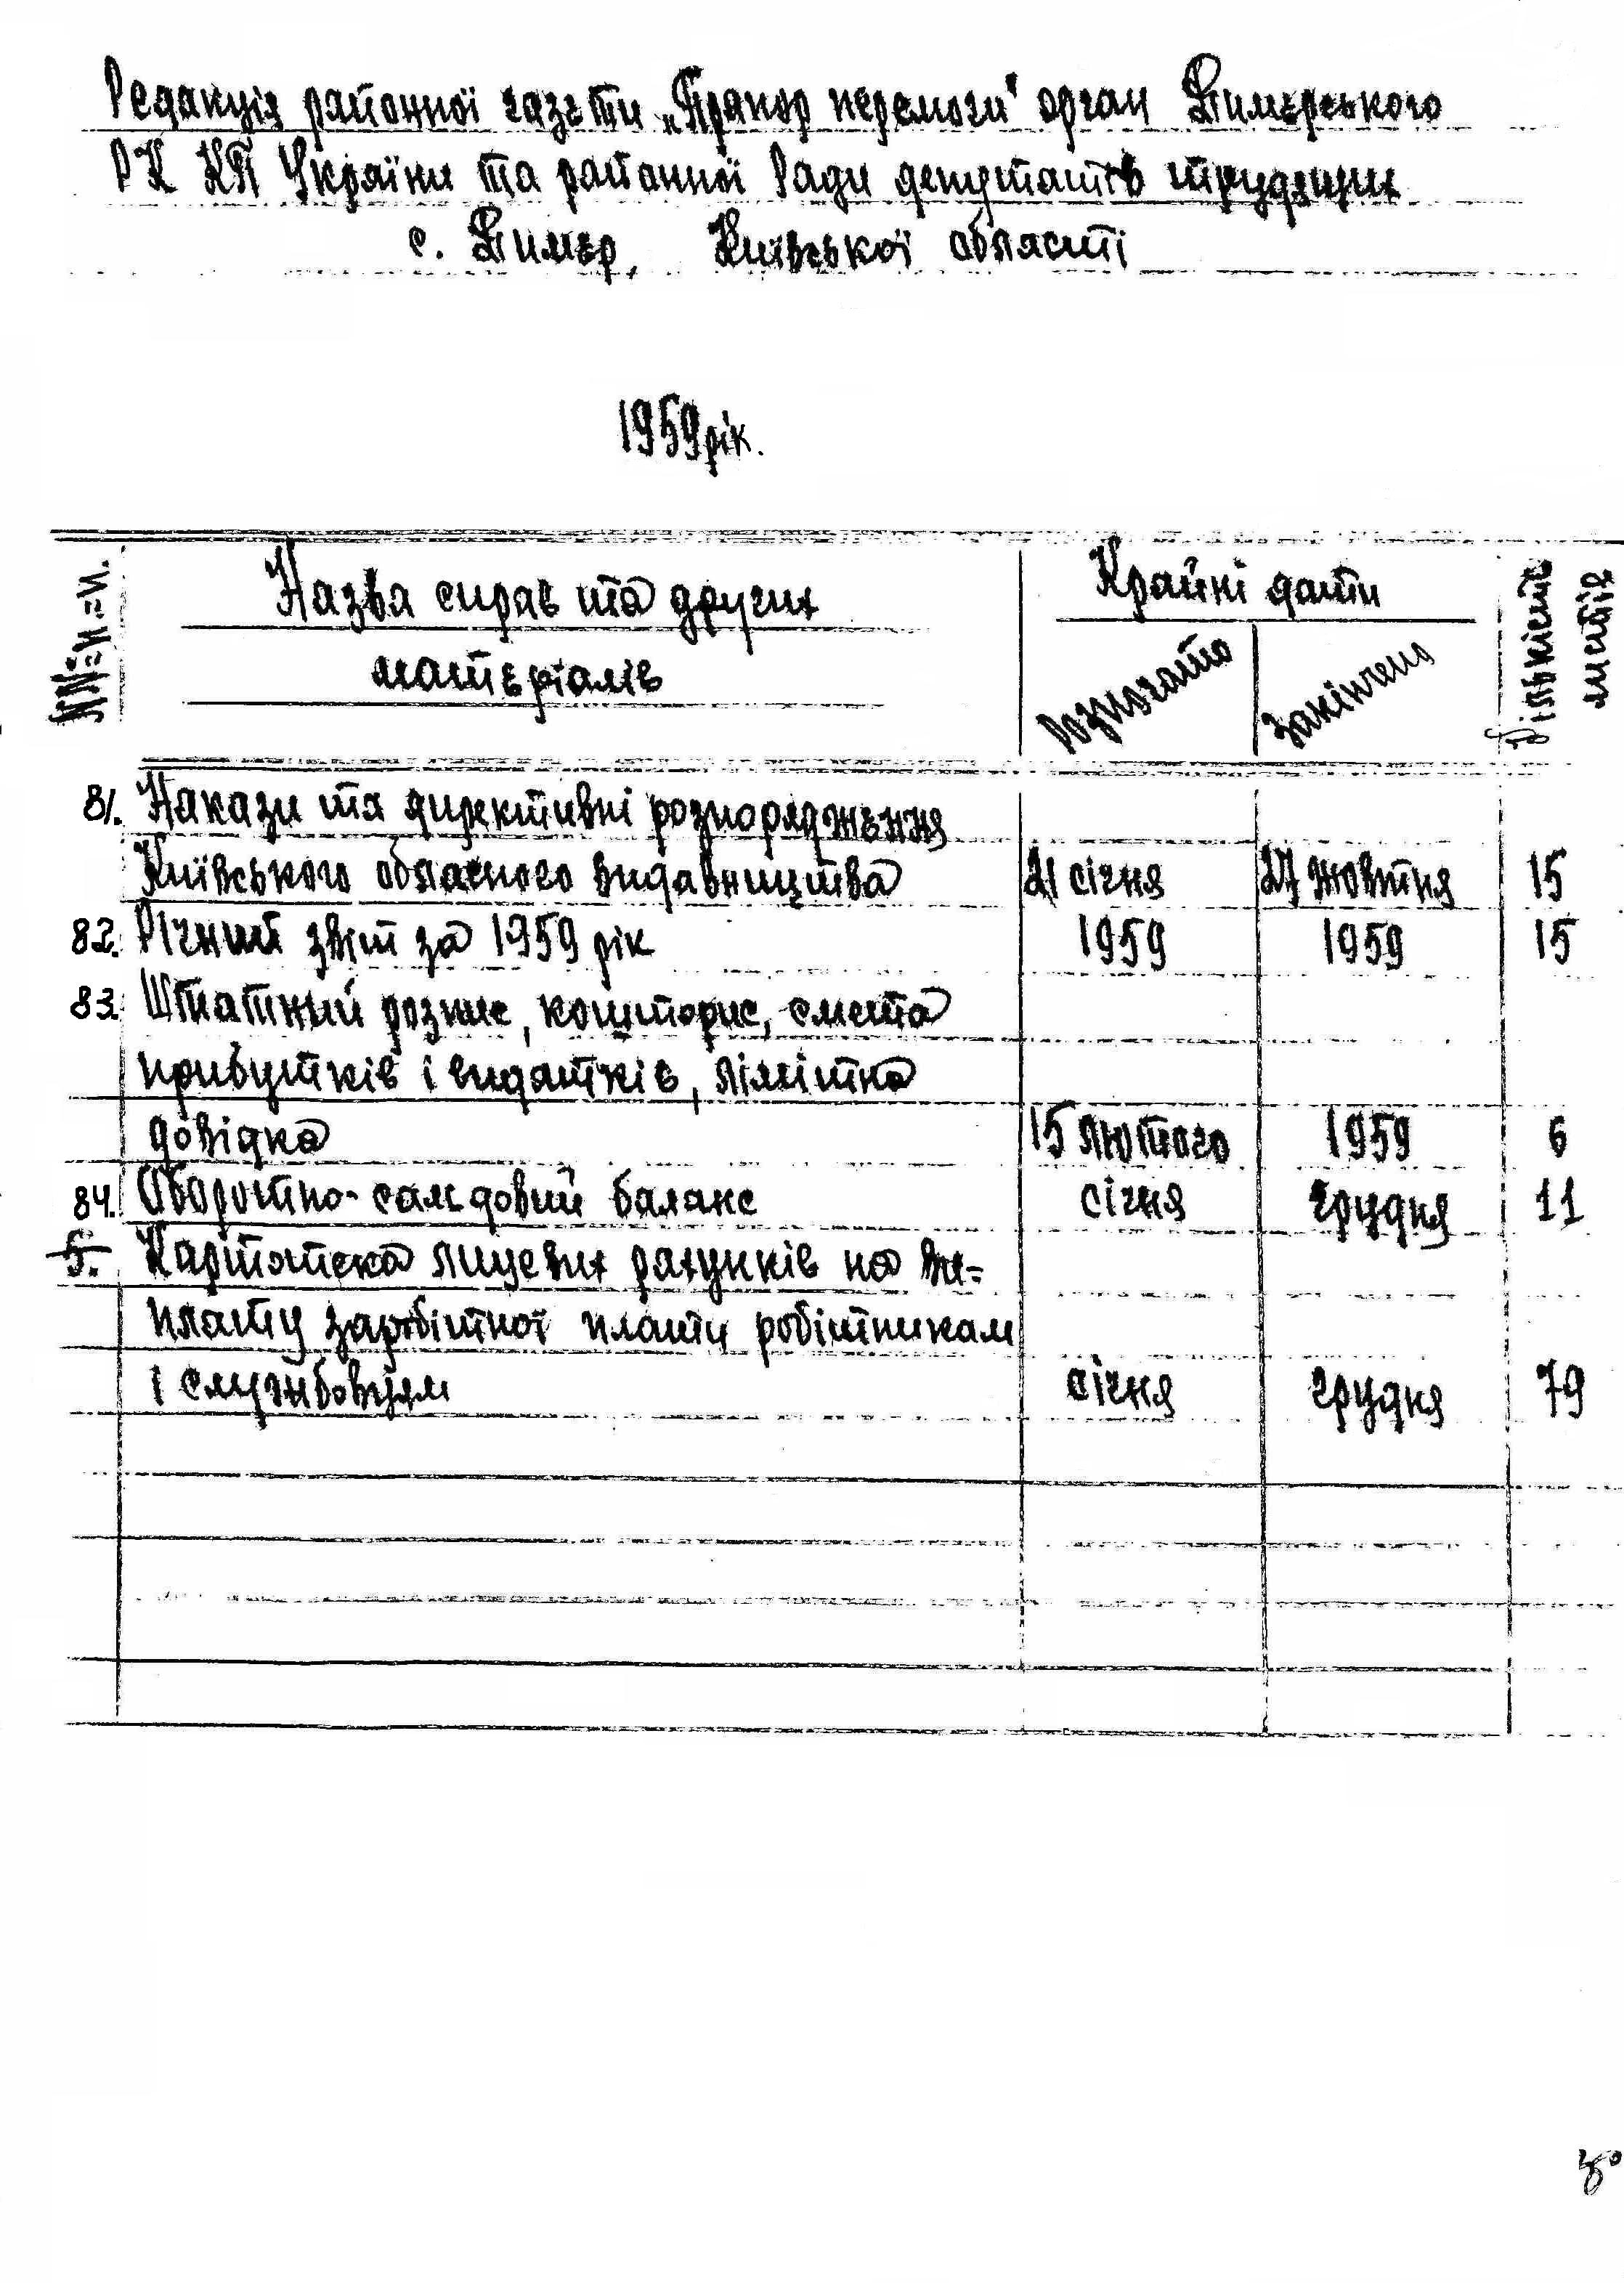 Редакція районної газети „Прапор перемоги" орган Димерського
РК КП України та районної Ради депутатів трудящих
с. Димер, Київської області
1959 рік.
№№=п=п.
Назва справ та других
матеріалів
Крайні дати
Розпочато
Закінчено
Кількість
листів
81. Накази та директивні розпорядження
Київського обласного видавництва 21 січня 27 жовтня 15
82. Річний звіт за 1959 рік 1959 1959 15
83. Штатний розпис, кошторис, смета
прибутків і видатків, лімітна
довідка 15 лютого 1959 6
84. Оборотно-сальдовий баланс січня грудня 11
5. Картотека лицевих рахунків на ви=
плату заробітної плати робітникам
і службовцям січня грудня 79